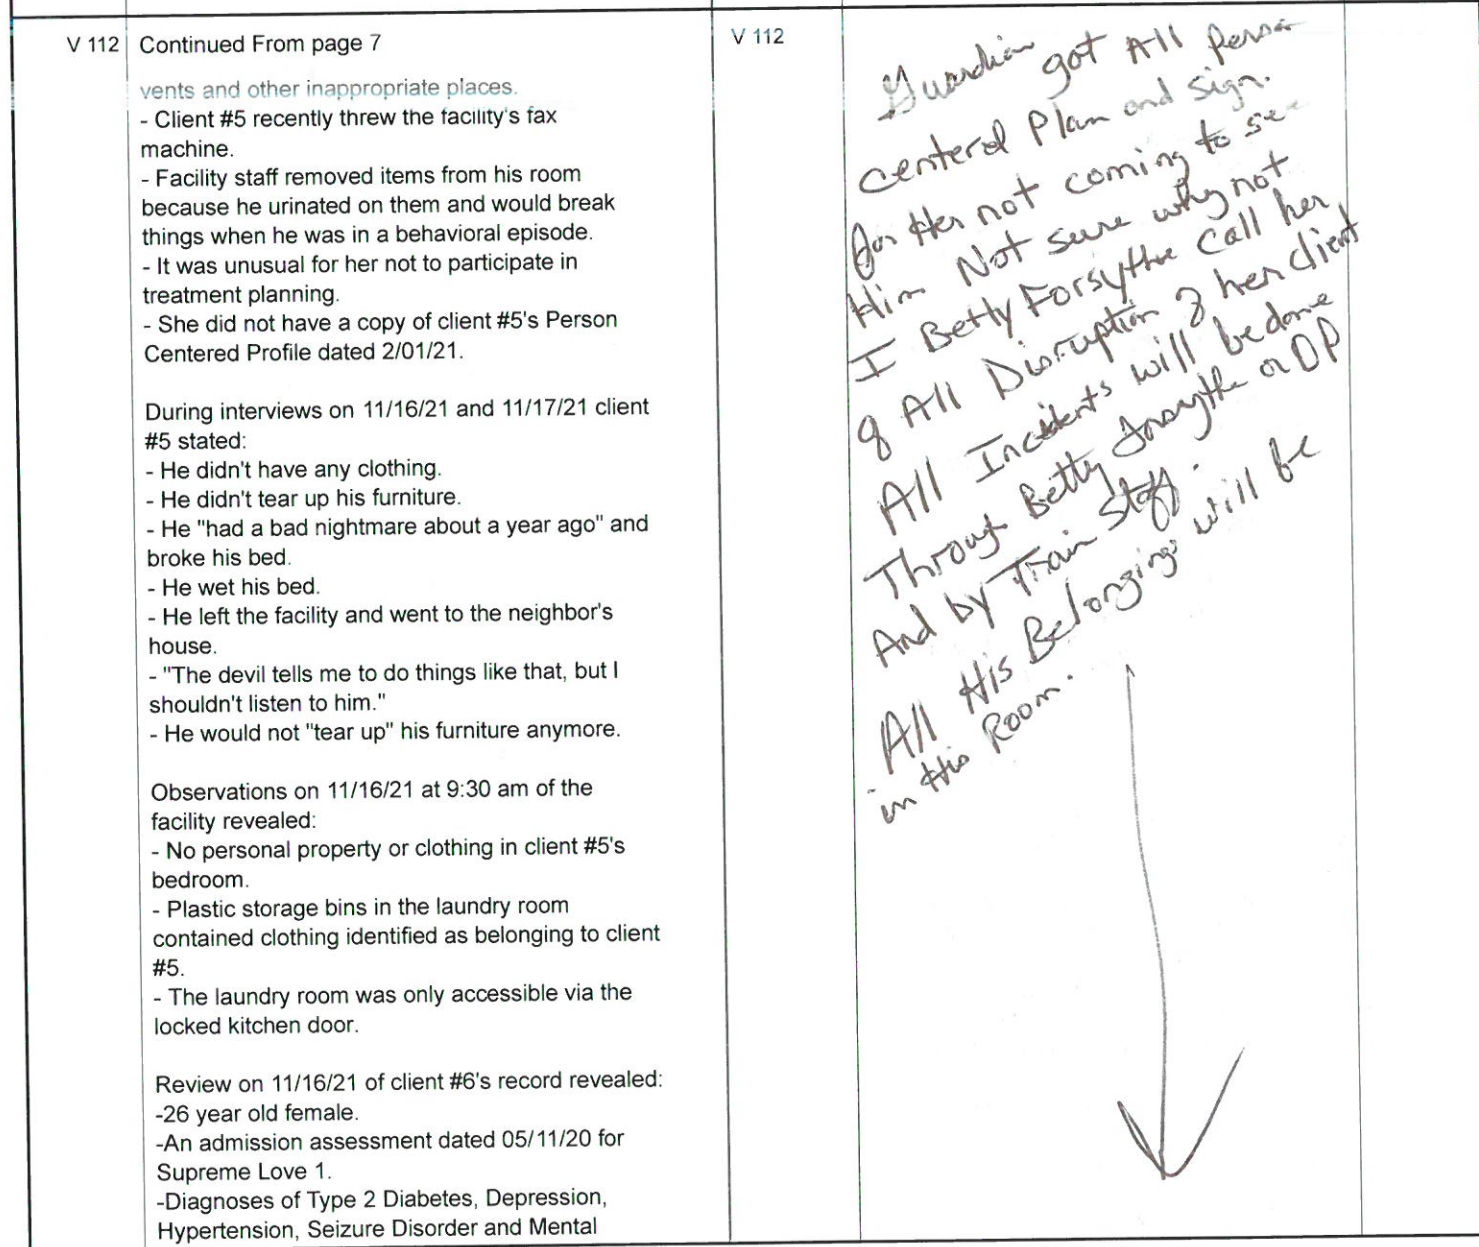 V 112
Continued From page 7
vents and other inappropriate places.
- Client #5 recently threw the facility's fax
machine.
- Facility staff removed items from his room
because he urinated on them and would break
things when he was in a behavioral episode.
- It was unusual for her not to participate in
treatment planning.
- She did not have a copy of client #5's Person
Centered Profile dated 2/01/21.
During interviews on 11/16/21 and 11/17/21 client
#5 stated:
- He didn't have any clothing.
- He didn't tear up his furniture.
- He "had a bad nightmare about a year ago" and
broke his bed.
- He wet his bed.
- He left the facility and went to the neighbor's
house.
- "The devil tells me to do things like that, but I
shouldn't listen to him."
- He would not "tear up" his furniture anymore.
Observations on 11/16/21 at 9:30 am of the
facility revealed:
- No personal property or clothing in client #5's
bedroom.
- Plastic storage bins in the laundry room
contained clothing identified as belonging to client
#5.
- The laundry room was only accessible via the
locked kitchen door.
Review on 11/16/21 of client #6's record revealed:
-26 year old female.
-An admission assessment dated 05/11/20 for
Supreme Love 1.
-Diagnoses of Type 2 Diabetes, Depression,
Hypertension, Seizure Disorder and Mental
V 112
Guardian got All Person
centered Plan and sign.
for Her not coming to see
Him Not sure why not
I Betty Forsythe Call her
of All Disruption of her client
All Incidents will be done
Through Betty Forsythe or
And by Train Staff.
All His Belongings will be
in His Room.